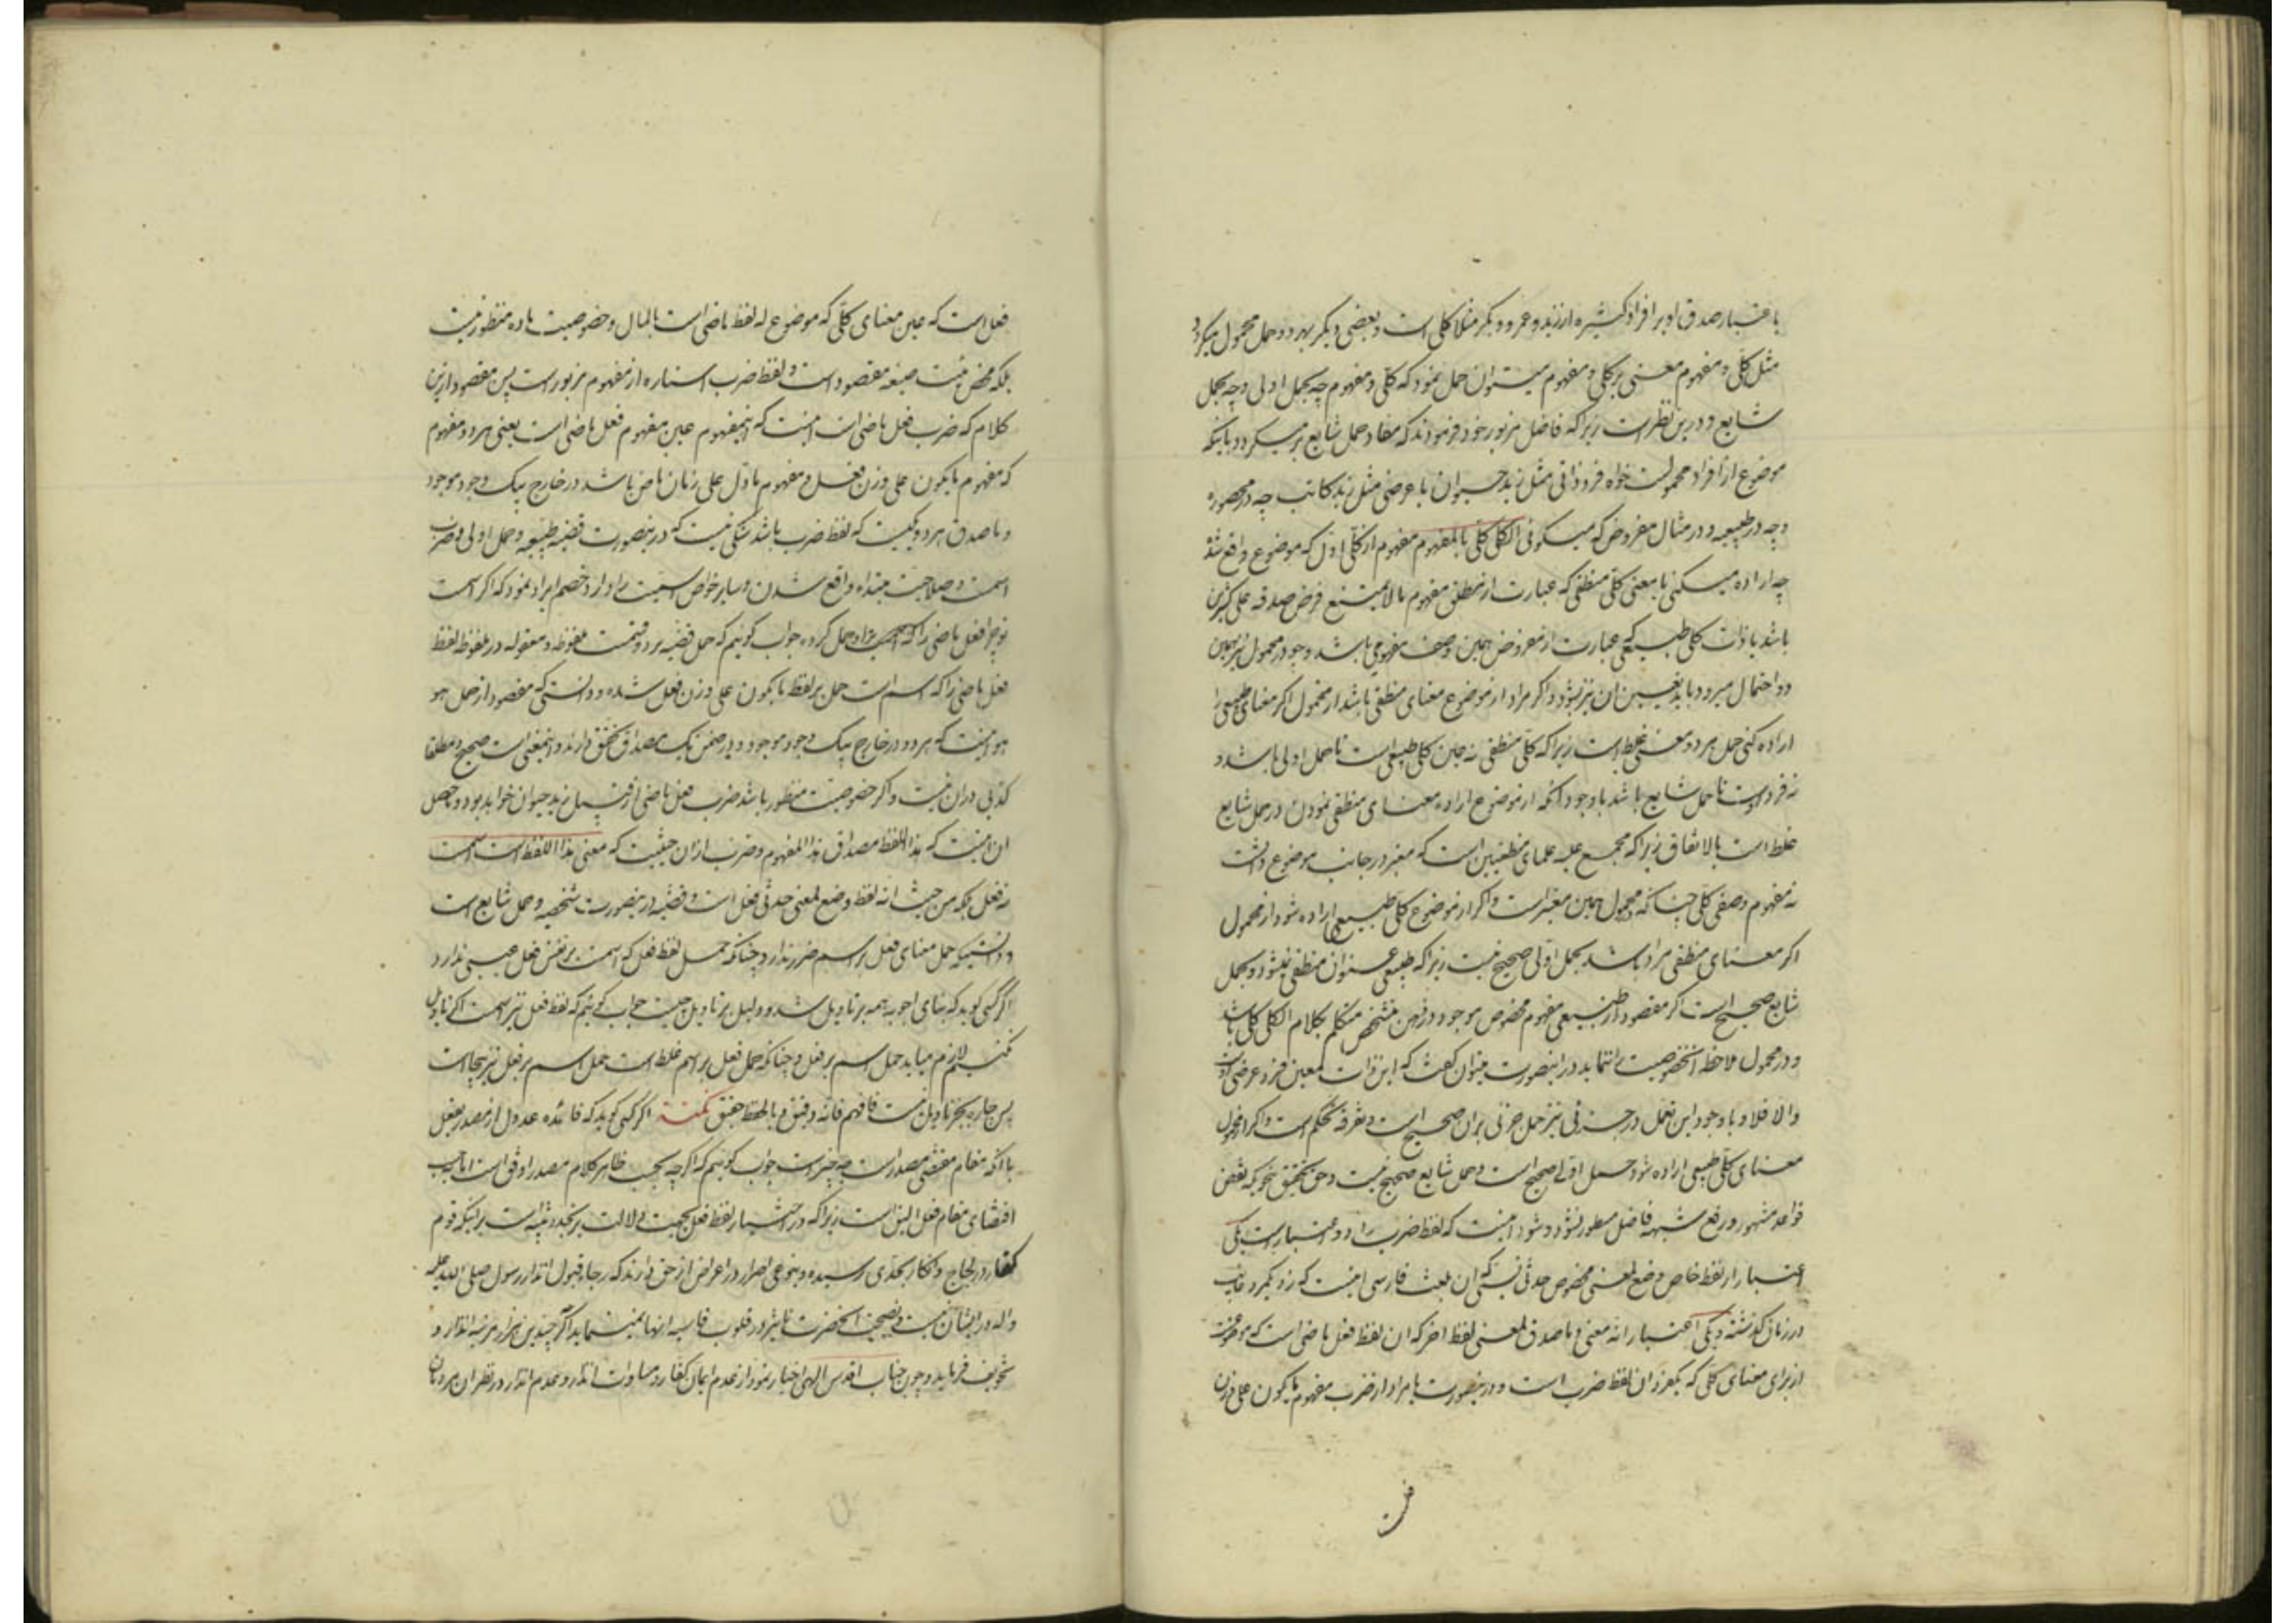 باعتبار صدق او بر افراد کثیره از زید و عمرو و بکر مثلا کلی است و بعضی دیگر بهر دو حمل محمول میکردد
مثل کلی و مفهوم معنی بر کلی و مفهوم میتوان حمل نمود که کلی و مفهوم چه بحمل اولی و چه بحمل
شایع و درین نظر است زیرا که فاضل مزبور خود فرمودند که مفاد حمل شایع بر میکردد باینکه
موضوع از افراد محمولست خواه فرد ذاتی مثل زید حیوان یا عرضی مثل زید کاتب چه در محصوره
و چه در طبیعیه و در مثال مفروض که میکوئی الکلی کلی یا المفهوم مفهوم از کلی اول که موضوع واقع شد
چه اراده میکنی یا معنی کلی منطقی که عبارت از مطلق مفهوم مالا یمتنع فرض صدقه علی کثیرین
باشد یا ذات کلی طبیعی که عبارت از معروض همین وصف مفهومی باشد و چو در محمول نیز همین
دو احتمال میرود باید تعیین ان نیز بشود و اکر مراد از موضوع معنای منطقی باشد از محمول اکر معنای طبیعی را
اراده کنی حمل بهر دو معنی غلط است زیرا که کلی منطقی نه عین کلی طبیعی است تا حمل اولی باشد و
نه فرد اوست تا حمل شایع باشد با وجود انکه از موضوع اراده معنای منطقی نمودن در حمل شایع
غلط است بالاتفاق زیرا که مجمع علیه علمای منطقیین است که معتبر در جانب موضوع ذاتست
نه مفهوم وصفی کلی چنانکه در محمول همین معتبر است و اکر از موضوع کلی طبیعی اراده شود از محمول
اکر معنای منطقی مراد باشد بحمل اولی صحیح نیست زیرا که طبیعی عنوان منطقی نمیشود و بحمل
شایع صحیح است اکر مقصود از طبیعی مفهوم مخصوص موجود در ذهن متشخص متکلم بکلام الکلی کلی باشد
و در محمول ملاحظه انخصوصیت ننماید در اینصورت میتوان کفت که این ذات معین فرد عرضی اوست
والا فلا و با وجود این تمحل در جزئی نیز حمل جزئی بران صحیح است و تفرقه تحکم است و اکر از محمول
معنای کلی طبیعی اراده شود حمل اولی صحیح است و حمل شایع صحیح نیست و حق تحقیق بنحویکه نقض
قواعد مشهور در رفع شبهه فاضل مسطور نشود و شود اینست که لفظ ضرب را دو اعتبار است یکی
اعتبار از لفظ خاص وضع لمعنی مخصوص حدثی نسبتی که ان بلغت فارسی اینست که زد یکمرد غایب
در زمان کذشته و یکی اعتبار انه معنی و ما صدق لمعنی لفظ اخر که ان لفظ فعل ماضی است که موضوعست
از برای معنای کلی که یکفرد ان لفظ ضرب است و درینصورت یا مراد از ضرب مفهوم ما یکون علی وزن
فعل است که عین معنای کلی که موضوع له لفظ ماضی است بالمال و خصوصیت ماده منظور نیست
بلکه محض هیئت صیغه مقصود است و لفظ ضرب اشاره از مفهوم مزبور است پس مقصود ازین
کلام که ضرب فعل ماضی است اینست که اینمفهوم عین مفهوم فعل ماضی است یعنی هر دو مفهوم
که مفهوم ما یکون علی وزن فعل و مفهوم ما دل علی زمان ماض باشد در خارج بیک وجود موجود
و ما صدق هر دو یکیست که لفظ ضرب باشد شکی نیست که درینصورت قضیه طبیعیه و حمل اولی و ضرب
اسمست و صلاحیت مبتداء واقع شدن و سایر خواص اسمیت دارد و اکر خصم ایراد نمود که اکر اسمست
تو چرا فعل ماضی را که بر او حمل کرده جواب کوئیم که حمل قضیه بر دو قسمت ملفوظه و معقوله در ملفوظه لفظ
فعل ماضی را که اسم است حمل بر لفظ ما یکون علی وزن فعل شده و دانستی که مقصود از حمل هو
هو اینست که هر دو در خارج بیک وجود موجود و در ضمن یک مصداق تحقق دارند و اینمعنی است صحیح و مطلقا
کذبی در ان نیست و اکر خصوصیت منظور باشد ضرب فعل ماضی از قبیل زید حیوان خواهد بود و حاصل
ان اینست که هذا اللفظ مصداق هذا المفهوم و ضرب ازان حیثیت که معنی هذا اللفظ است اسمست
نه فعل بلکه من حیث انه لفظ وضع لمعنی حدثی فعل است و قضیه درینصورت شخصیه و حمل شایع است
و دانستیکه حمل معنای فعل بر اسم ضرر ندارد چنانکه حمل لفظ فعل که اسمست بر نفس فعل عیبی ندارد
اکر کسی کوید که بنای اجوبه همه بر تاویل شد و دلیل بر تاویل چیست جواب کوئیم که لفظ فعل نیز اسمست اکر تاویل
نکنیم لازم میاید حمل اسم بر فعل و چنانکه حمل فعل بر اسم غلط است حمل اسم بر فعل نیز بیجاست
پس چاره بجز تاویل نیست فافهم فانه دقیق و بالحفظ حقیق نکتة اکر کسی کوید که فائده عدول از مصدر بفعل
با انکه مقام مقتضی مصدر است چه چیز است جواب کوئیم که اکرچه بحسب ظاهر کلام مصدر اوفق است اما بحسب
اقتضای مقام فعل الیق است زیرا که در اختیار لفظ فعل بجهت دلالت بر تجدد تنبیه است بر اینکه قوم
کفار در لجاج و انکار بحدی رسیده و بنوعی اصرار در اعراض از حق دارند که رجاء قبول انذار رسول صلی الله علیه
واله در ایشان نیست و نصیحت انحضرت تاثیر در قلوب قاسیه انها نمینماید اکر چندین هزار مرتبه انذار و
تخویف فرماید و چون جناب اقدس الهی اخبار نمود از عدم ایمان کفار و مساوات انذار و عدم انذار در نظر ان مردمان